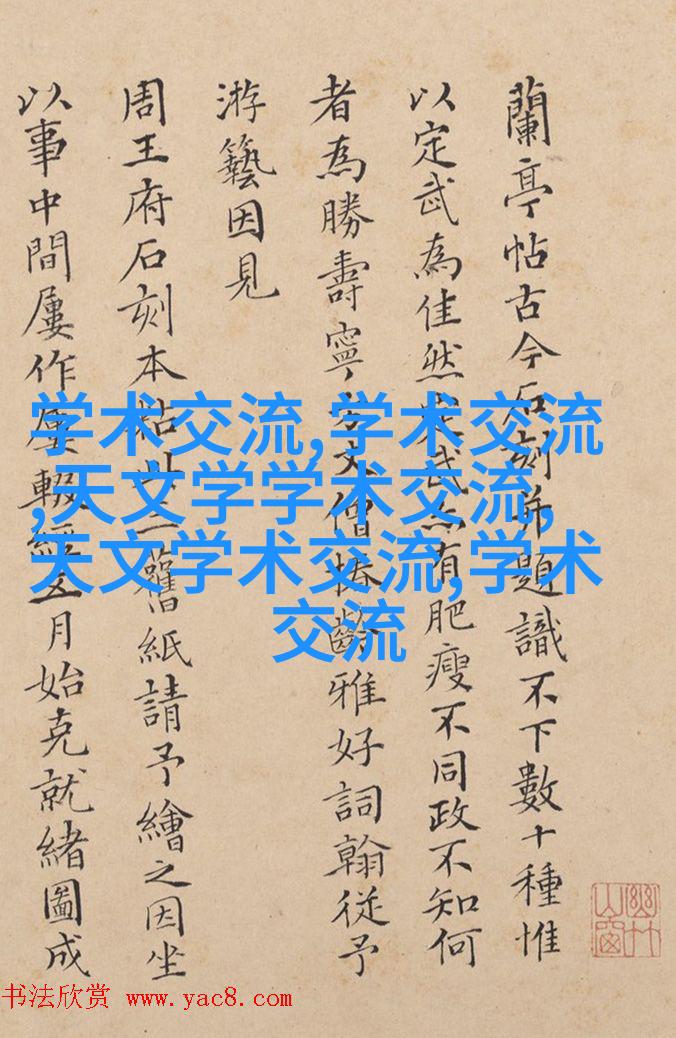 蘭亭帖古今石刻題識不下數十種惟
以定武為佳然定武亦有肥瘦不同政不知何
者為勝壽寧方丈僧齡雅好詞翰從予
游藝因見
周王府石刻本舊紙請予繪之因坐
以事中間屢作屢輟經五月始克就緒圖成
学术交流,学术交流
,天文学学术交流,
天文学术交流,学术
交流
幽竹山窗
书法欣赏 www.yac8.com